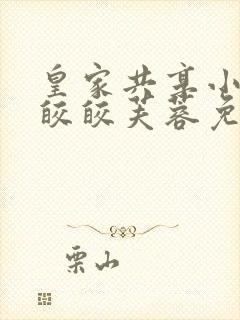 皇家共享小
皎皎芙蓉免
栗山